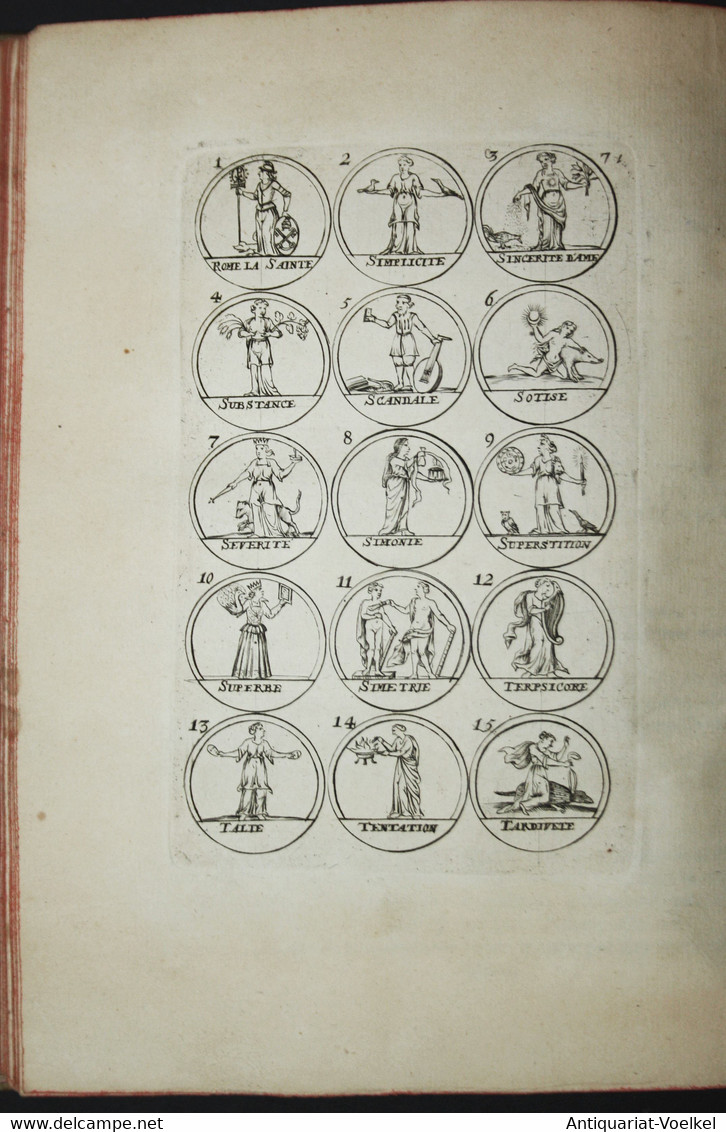 1 2 3 71
ROME LA SAINTE SIMPLICITE SINCERITE D'AME
4 5 6
SUBSTANCE SCANDALE SOTISE
7 8 9
SEVERITE SIMONIE SUPERSTITION
10 11 12
SUPERBE SIMETRIE TERPSICORE
13 14 15
TALIE TENTATION TARDIVETE
delcampe.net
Antiquariat-Voelkel